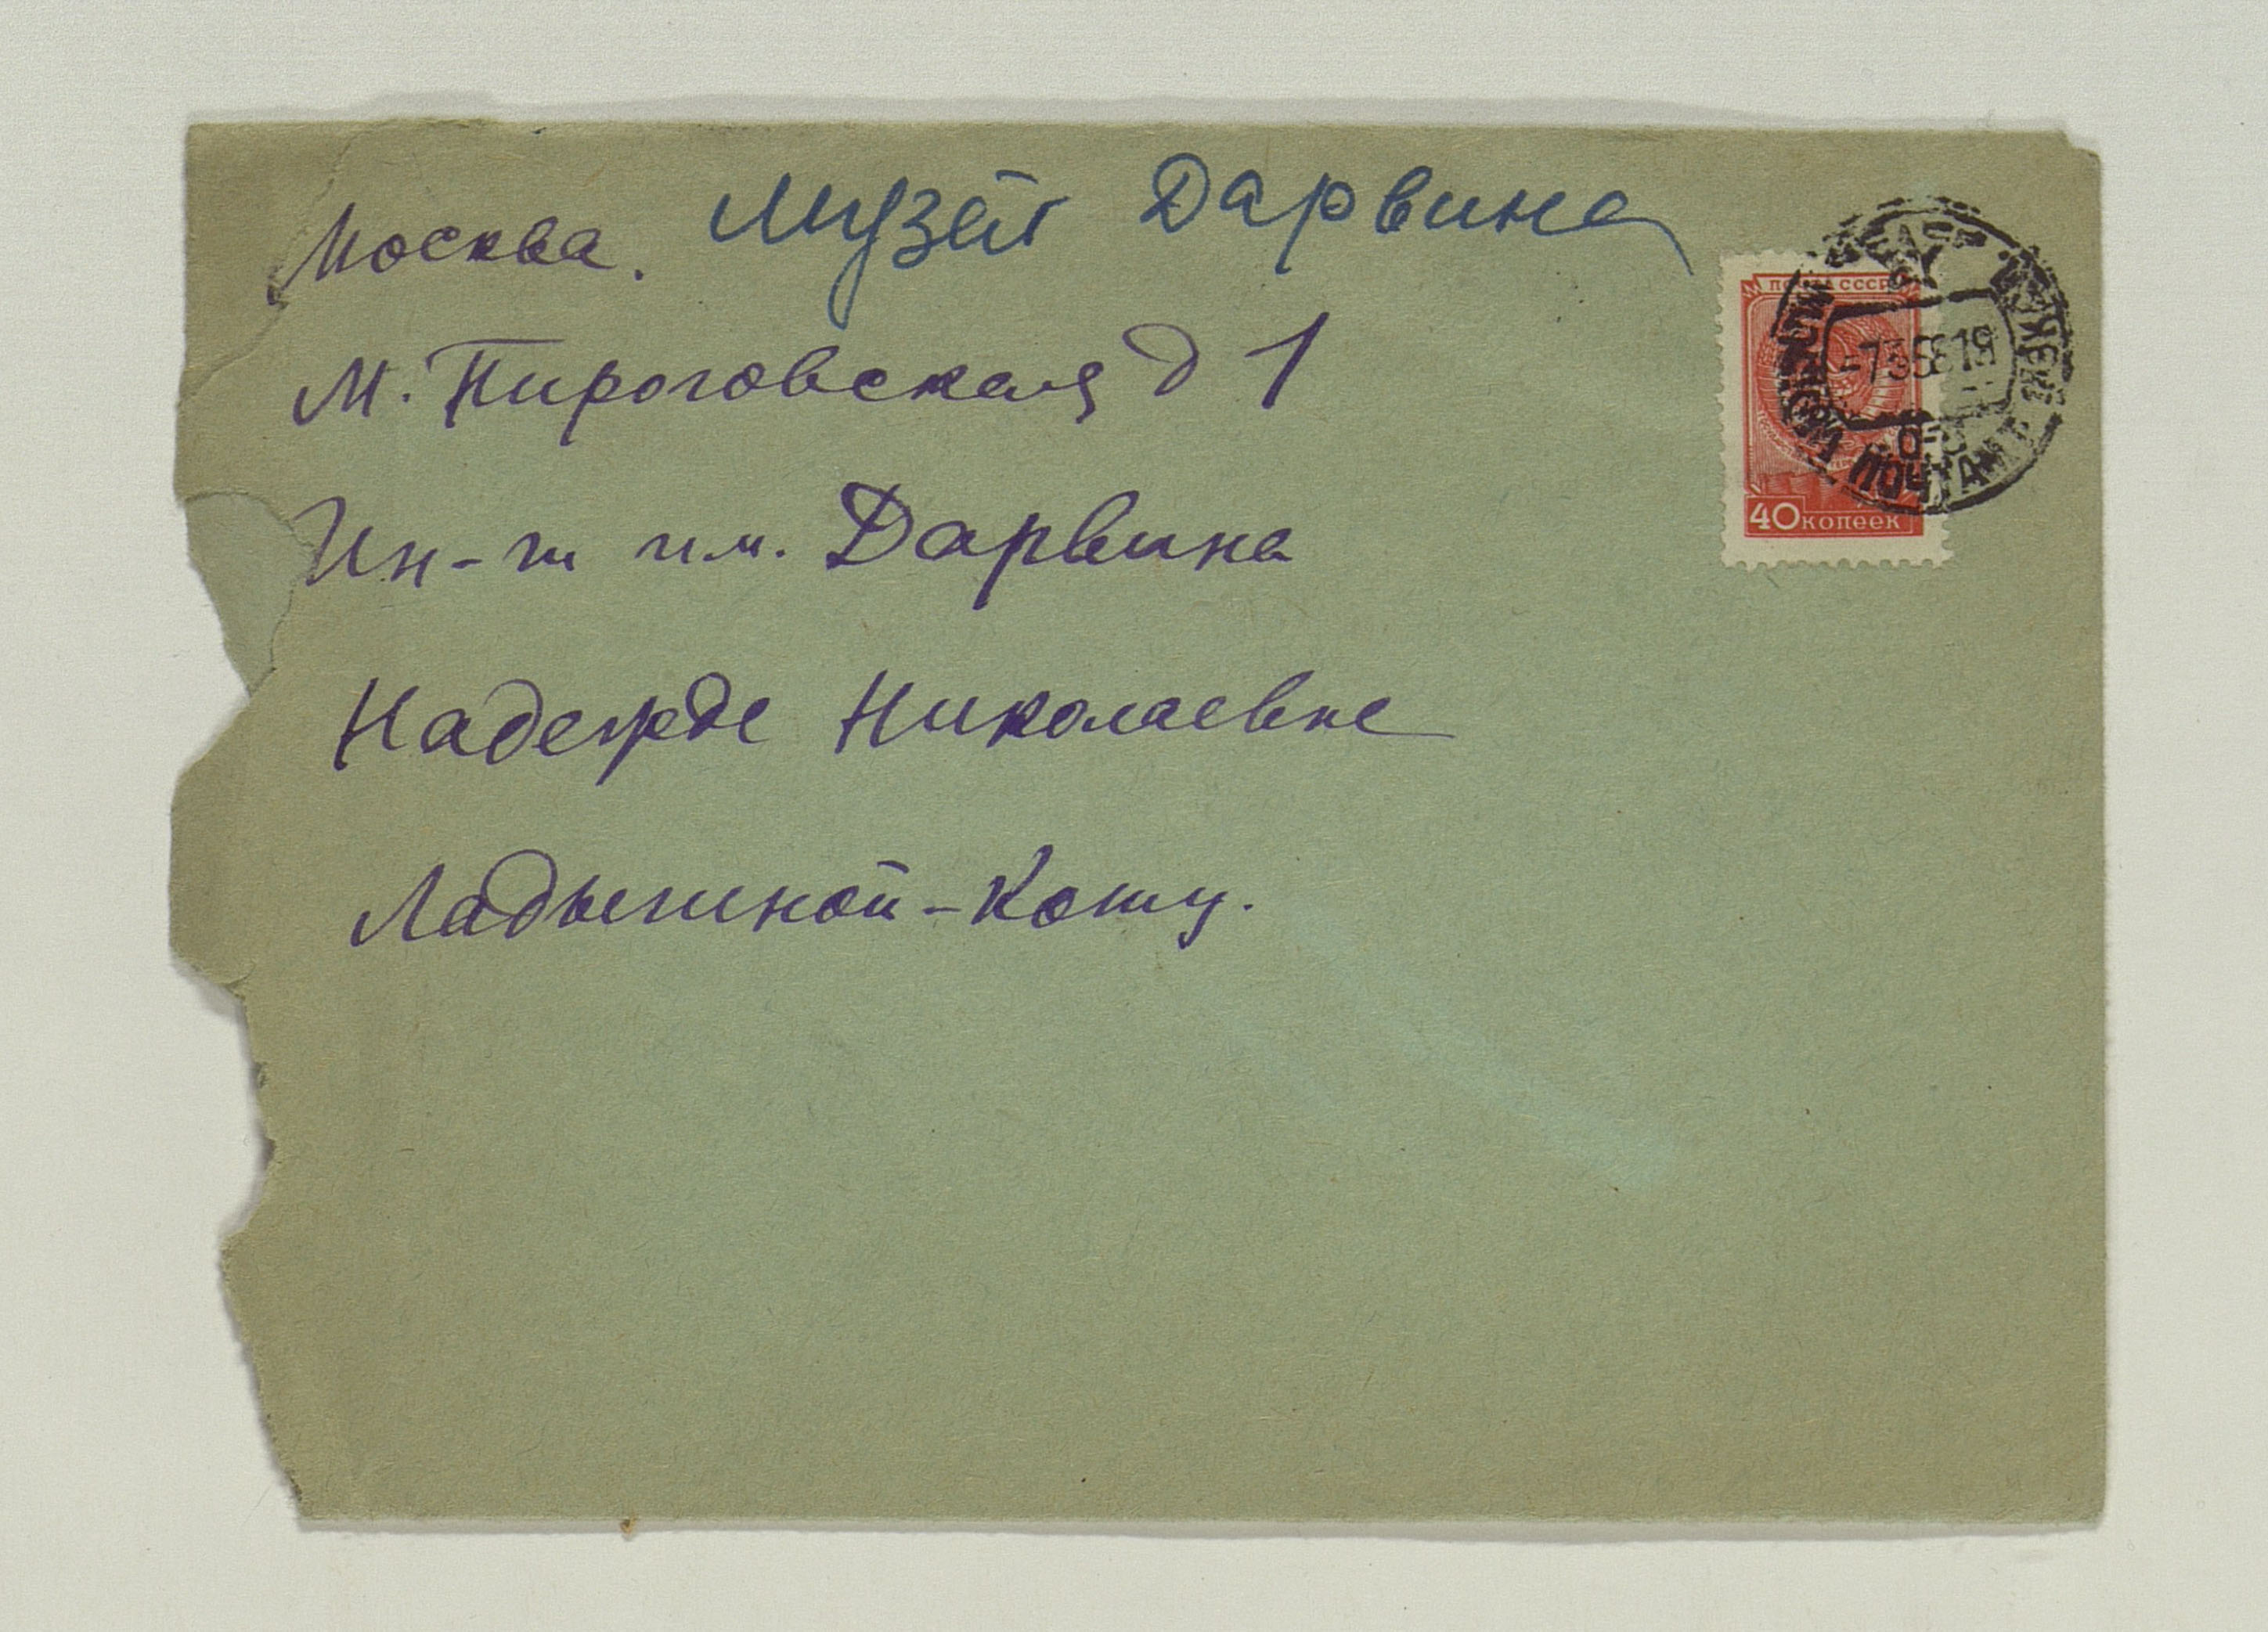 Москва. Музей Дарвина
М. Пироговская д 1
Ин-т им. Дарвина
Надежде Николаевне
Ладыгиной-Котц.
ПОЧТА СССР
40 КОПЕЕК
ПОЧТАМТ